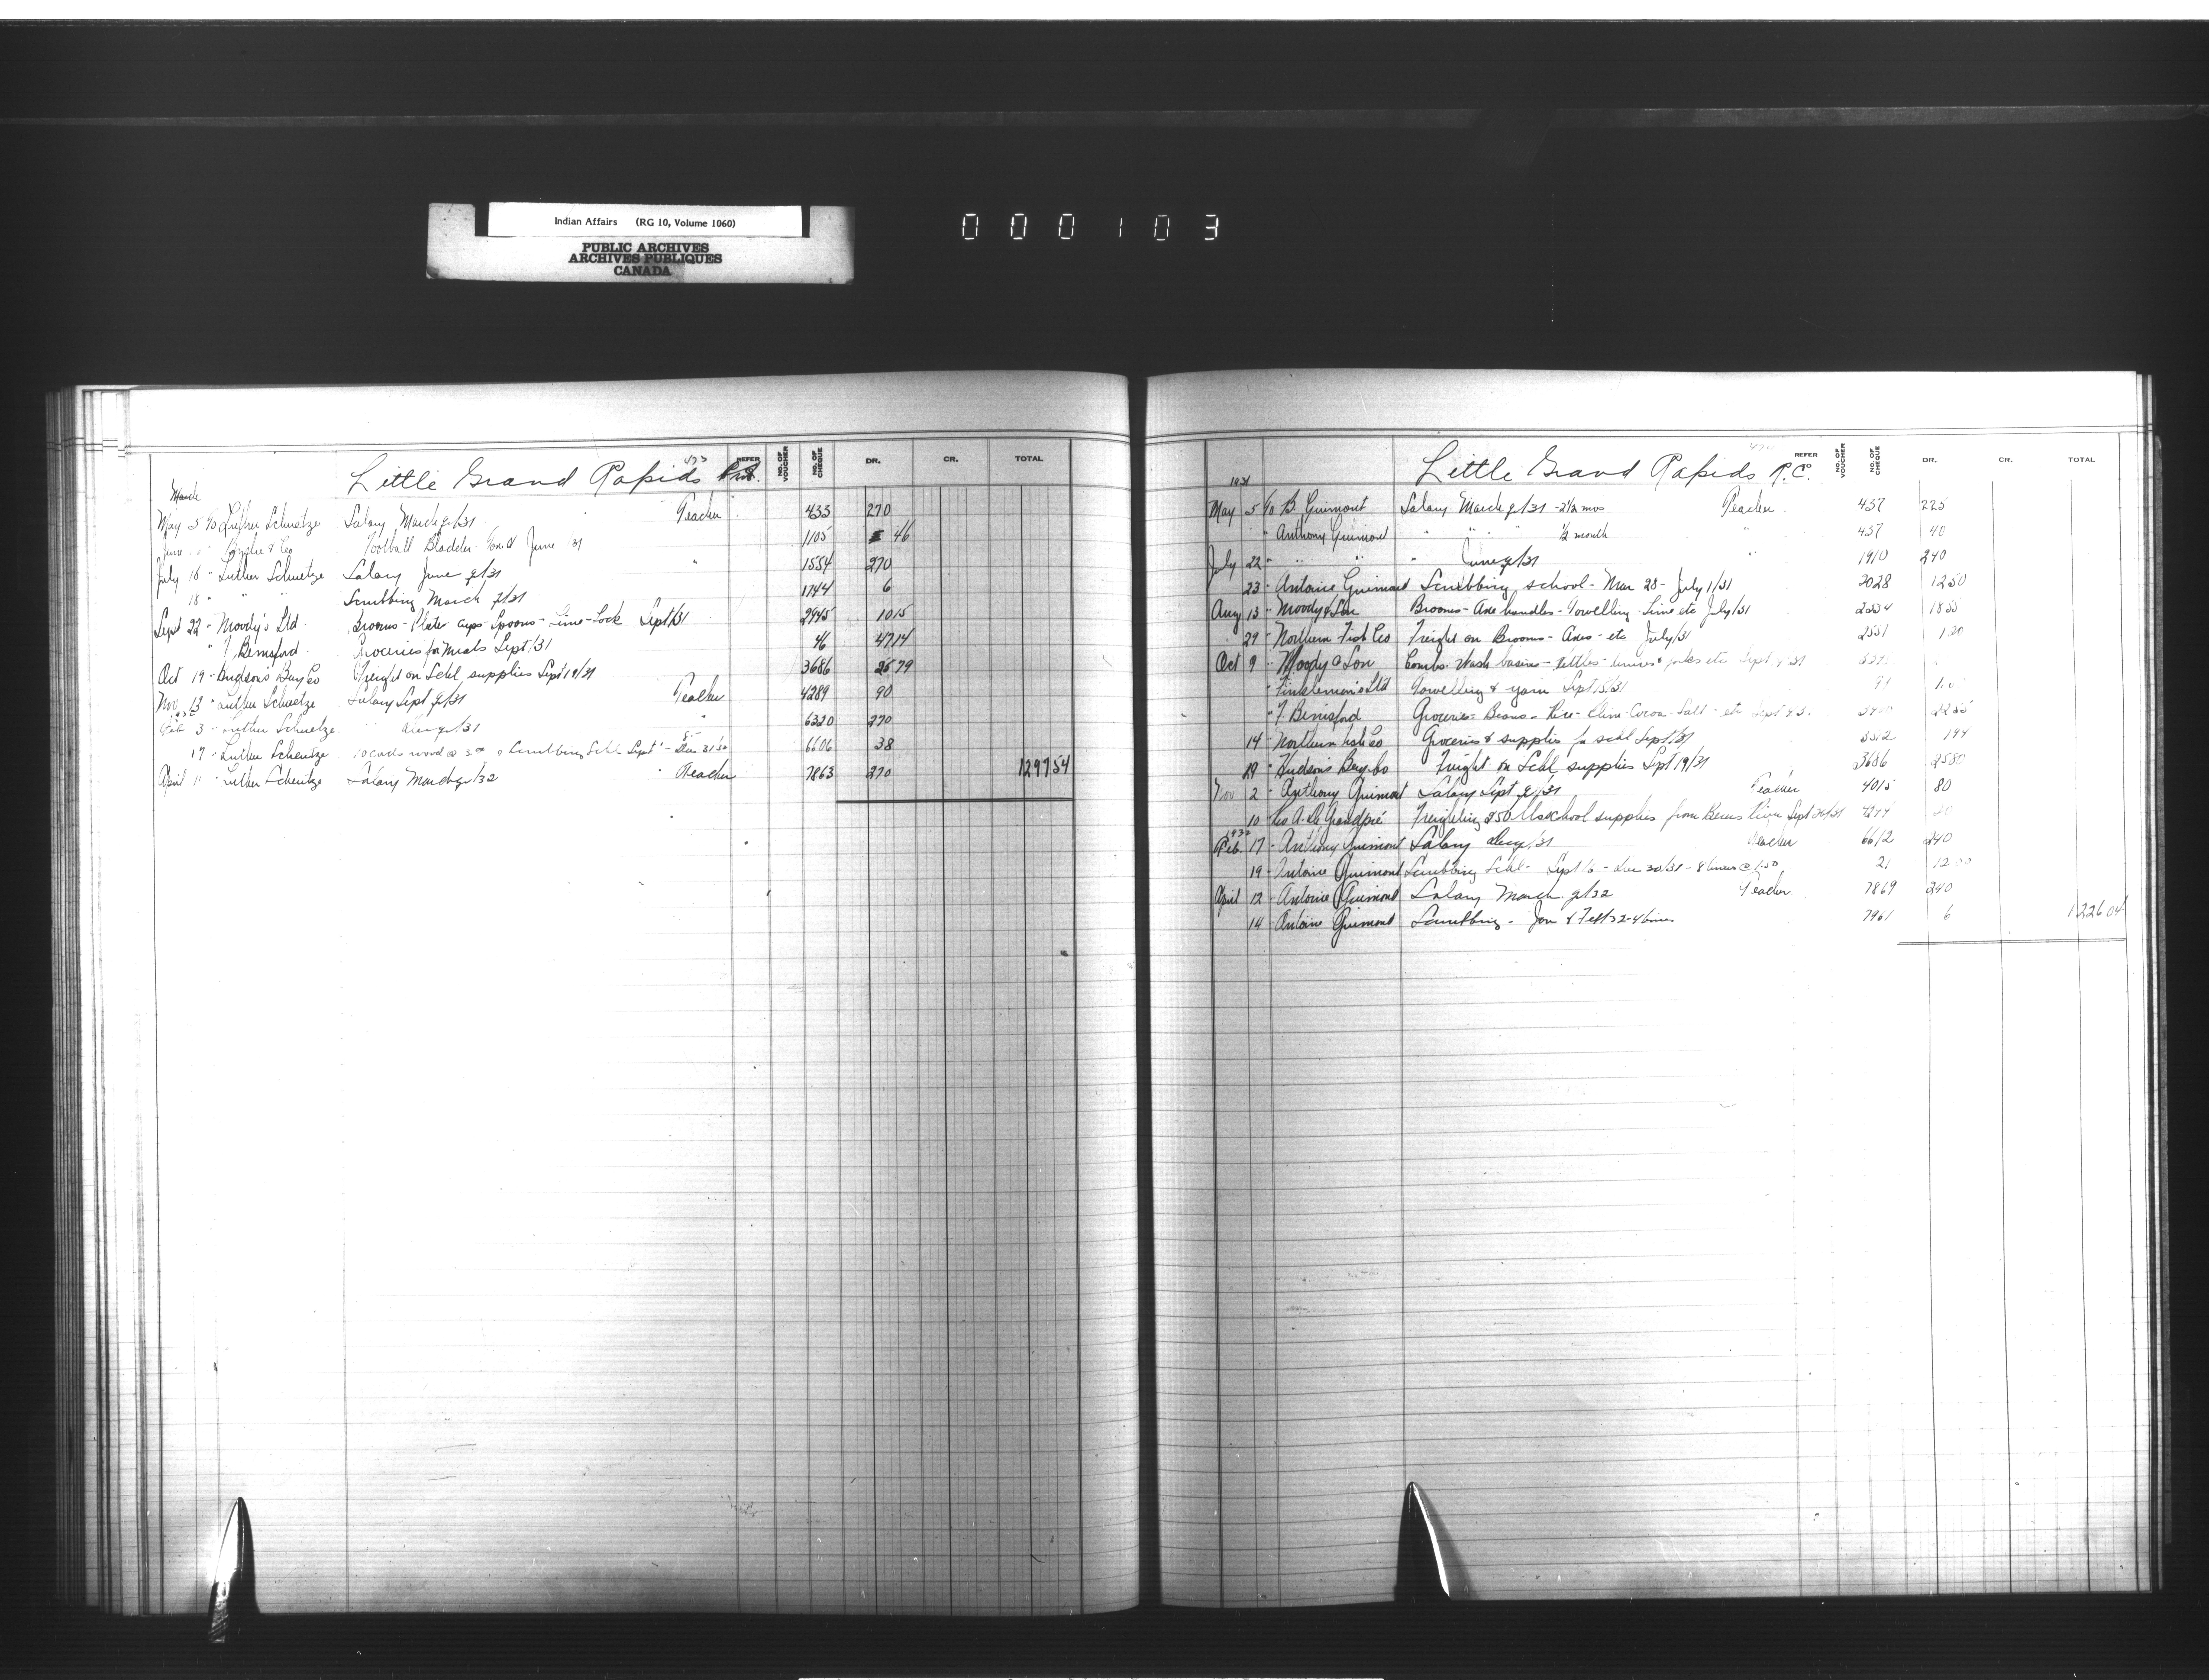 Indian Affairs (RG 10, Volume 1060)
PUBLIC ARCHIVES
ARCHIVES PUBLIQUES
CANADA
000103
Little Grand Rapids
REFER NO. OF VOUCHER NO. OF CHEQUE DR. CR. TOTAL
March
May 5 Luther Schuetze Salary March q/31 Teacher 433 270
June Football Bladder June 31 1105 46
July 16 " Luther Schuetze Salary June q/31 " 1554 270
18 " " Scrubbing March q/31 1744 6
Sept 22 " Moody's Ltd Brooms - Plates Cups - Spoons - Lime - Lock Sept/31 2945 1015
" Bemsford Groceries for Meals Sept/31 46 4714
Oct 19 " Hudson's Bay Co Freight on Schl supplies Sept 19/31 3686 2579
Nov 13 " Luther Schuetze Salary Sept q/31 Teacher 4289 90
Feb 3 " Luther Schuetze " Dec q/31 " 6320 270
17 " Luther Scheutze 10 cords wood @ Scrubbing Schl Sept - Dec 31 6606 38
April 11 " Luther Scheutze Salary March q/32 " Teacher 7863 270 129754
Little Grand Rapids R.C.
REFER NO. OF VOUCHER NO. OF CHEQUE DR. CR. TOTAL
1931
May 5 B. Guimont Salary March q/31 - 2½ mos Teacher 457 225
" Anthony Guimond " " ½ month 457 40
July 22 " " " " June q/31 " 1910 240
23 " Antoine Guimond Scrubbing school - Mar 28 - July 1/31 2028 1250
Aug 13 " Moody & Son Brooms - Axe handles - Towelling - Lime etc July/31 1855
29 " Northern Fish Co Freight on Brooms - Axes - etc July/31 2551 120
Oct 9 " Moody & Son Combs - Wash basins - kettles - knives & forks etc Sept
" Finkleman's Ltd Towelling & yarn Sept 15/31
" Bemsford Groceries - Beans - Rice - Klim - Cocoa - Salt - etc Sept
14 " Northern Fish Co Groceries & supplies for schl Sept/31 194
29 " Hudson's Bay Co Freight on Schl supplies Sept 19/31 3686 2580
Nov 2 " Anthony Guimont Salary Sept q/31 Teacher 4015 80
10 A. De Grandpré Freighting 850 lbs school supplies from Berens River Sept
1932
Feb. 17 " Anthony Guimont Salary Dec q/31 Teacher 6612 240
19 " Antoine Guimont Scrubbing Schl - Sept 6 - Dec 30/31 - 8 times @ 1.50 21 1200
April 12 " Antoine Guimont Salary March q/32 Teacher 7869 240
14 " Antoine Guimont Scrubbing - Jan & Feb/32 - 4 times 7961 6 122604